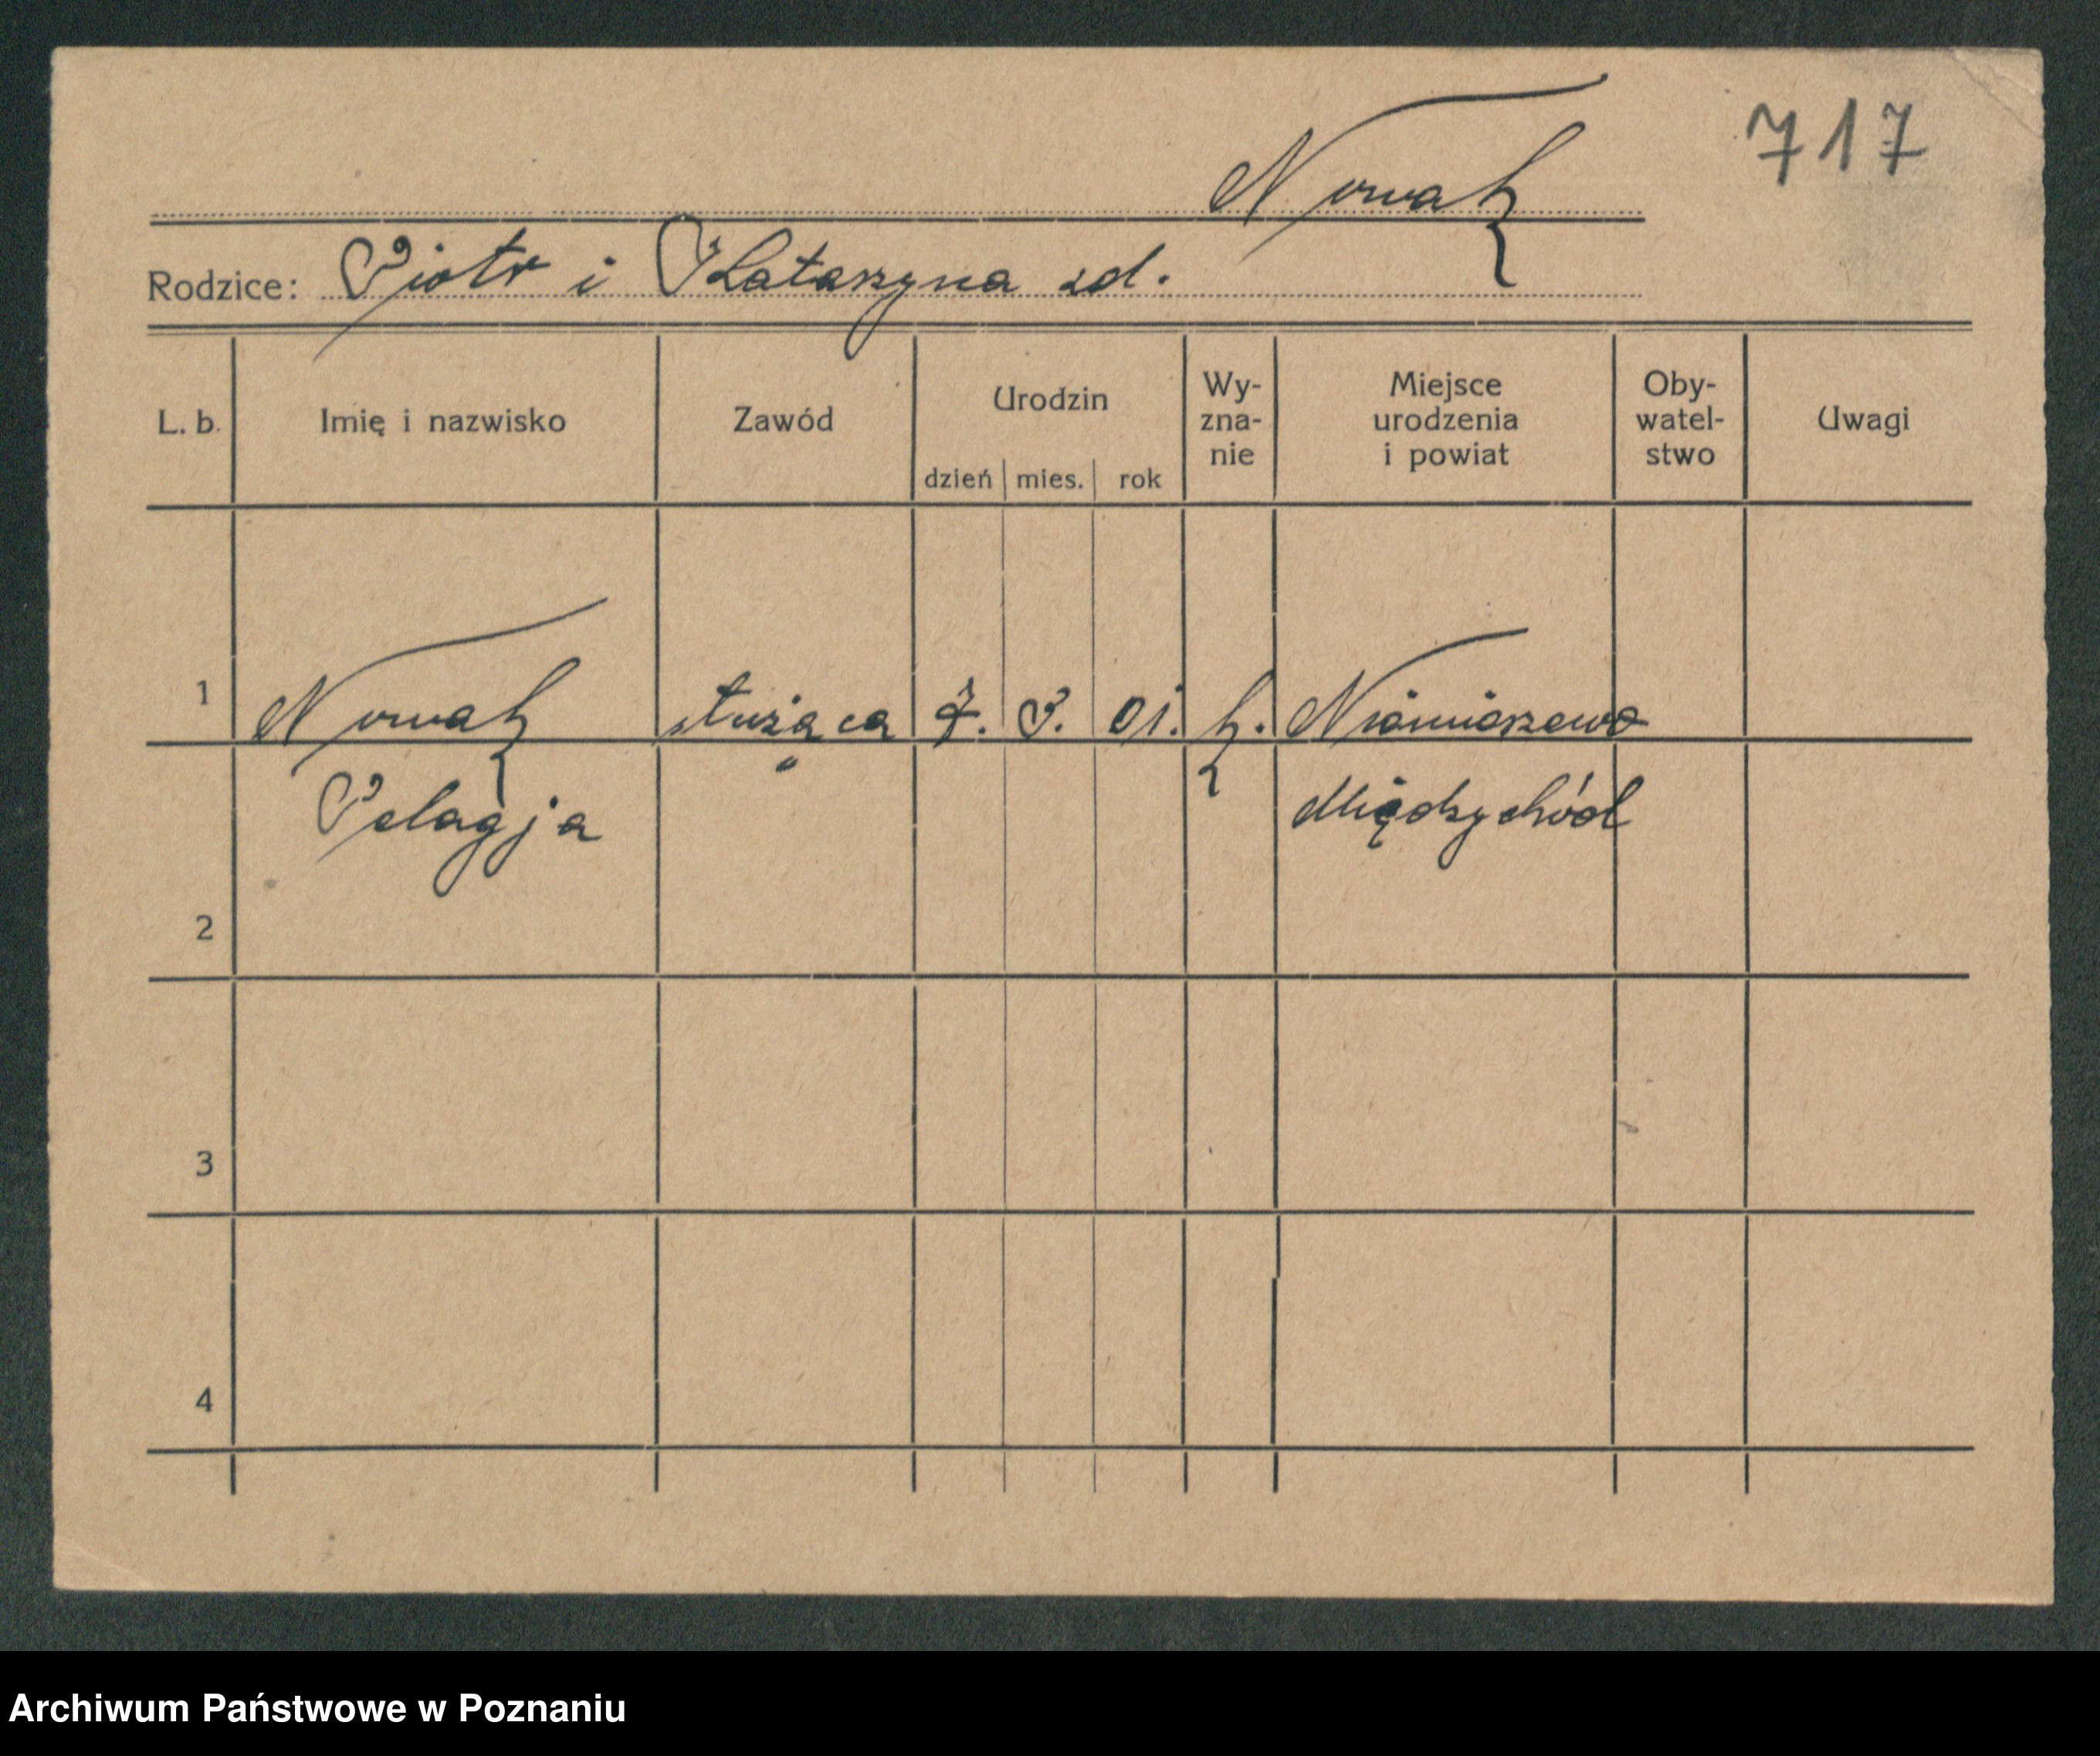 717
Nowak
Rodzice: Piotr i Katarzyna zd.
L. b. Imię i nazwisko Zawód Urodzin dzień mies. rok Wy-zna-nie Miejsce urodzenia i powiat Oby-watel-stwo Uwagi
1 Nowak służąca 7. 01. k.
Pelagja Międzychód
2
3
4
Archiwum Państwowe w Poznaniu